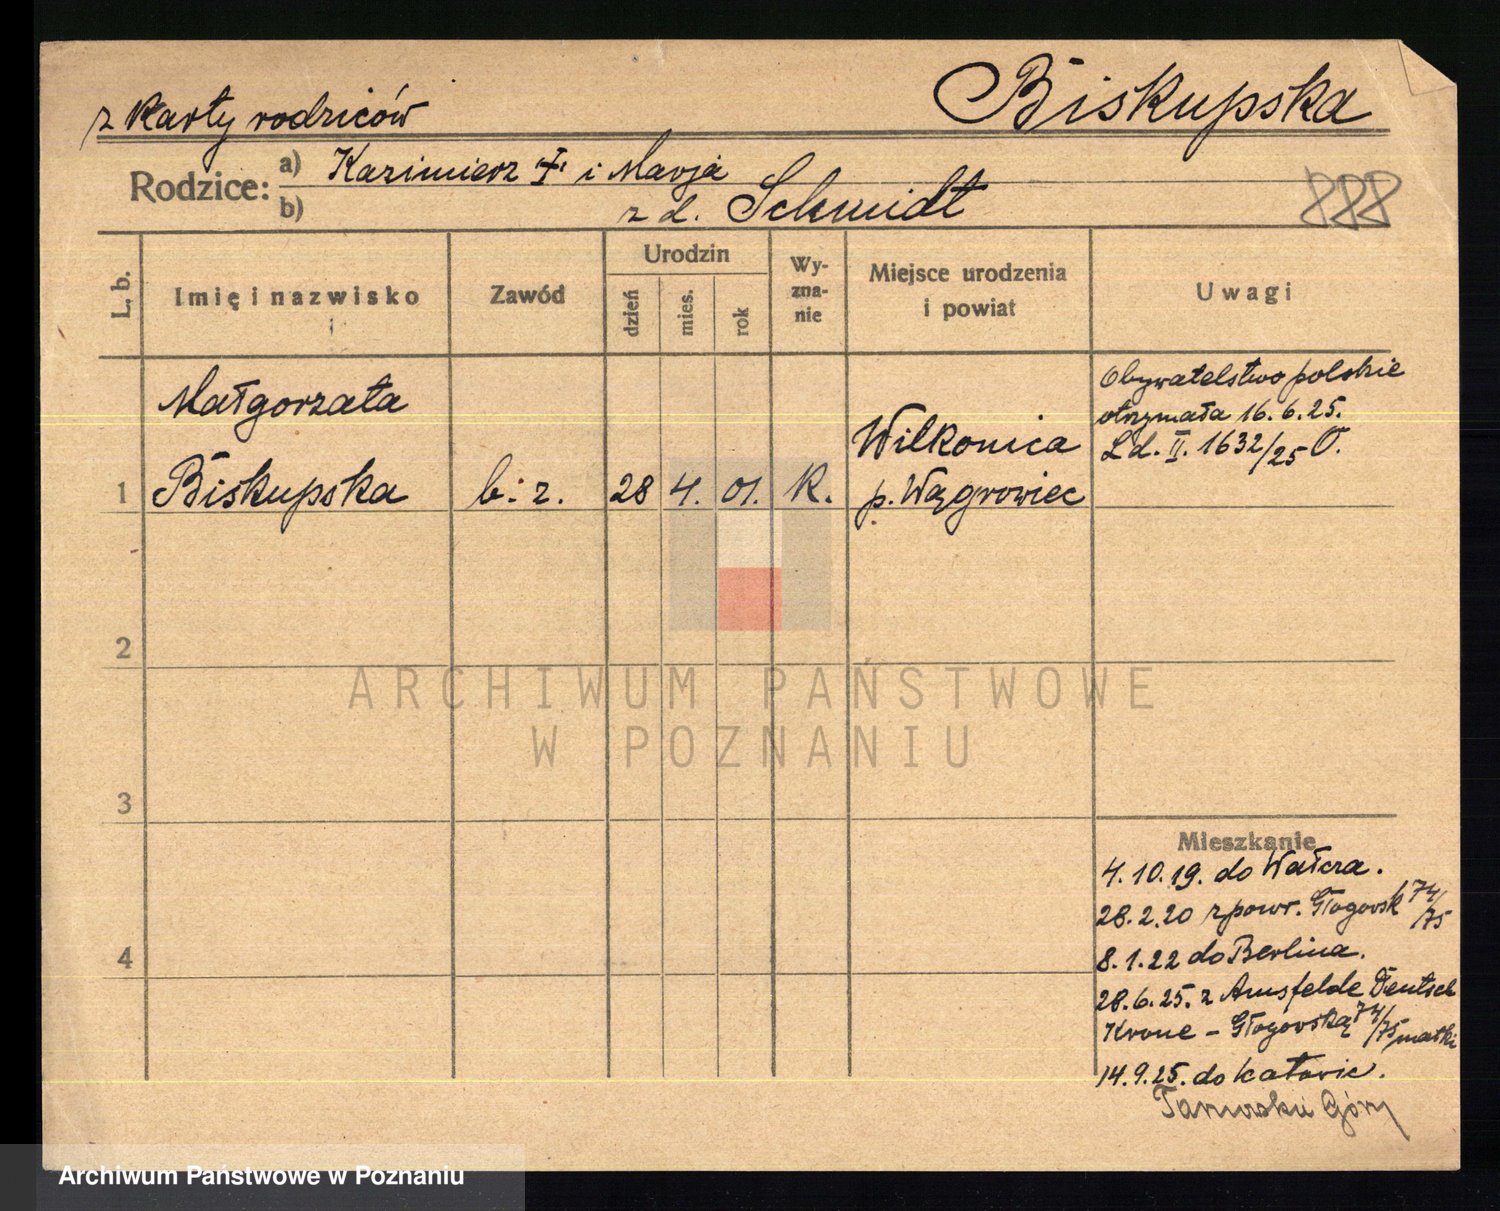 Biskupska
z karty rodziców
Rodzice: a) Kazimierz † i Marja
b) z d. Schmidt
888
L. b.
Imię i nazwisko
Zawód
Urodzin
dzień
mies.
rok
Wy-
zna-
nie
Miejsce urodzenia
i powiat
Uwagi
1
Małgorzata
Biskupska
b. z.
28
4.
01.
K.
Wilkonica
p. Wągrowiec
Obywatelstwo polskie
otrzymała 16.6.25.
Ld. II. 1632/25 O.
2
3
4
Mieszkanie
4.10.19. do Wałcza.
28.2.20 z powr. Głogovsk 74/75
8.1.22 do Berlina.
28.6.25. z Arnsfelde Deutsch
Krone - Głogovską 74/75 matki
14.9.25. do Katovic.
Tarnowskie Góry
ARCHIWUM PAŃSTWOWE
W POZNANIU
Archiwum Państwowe w Poznaniu